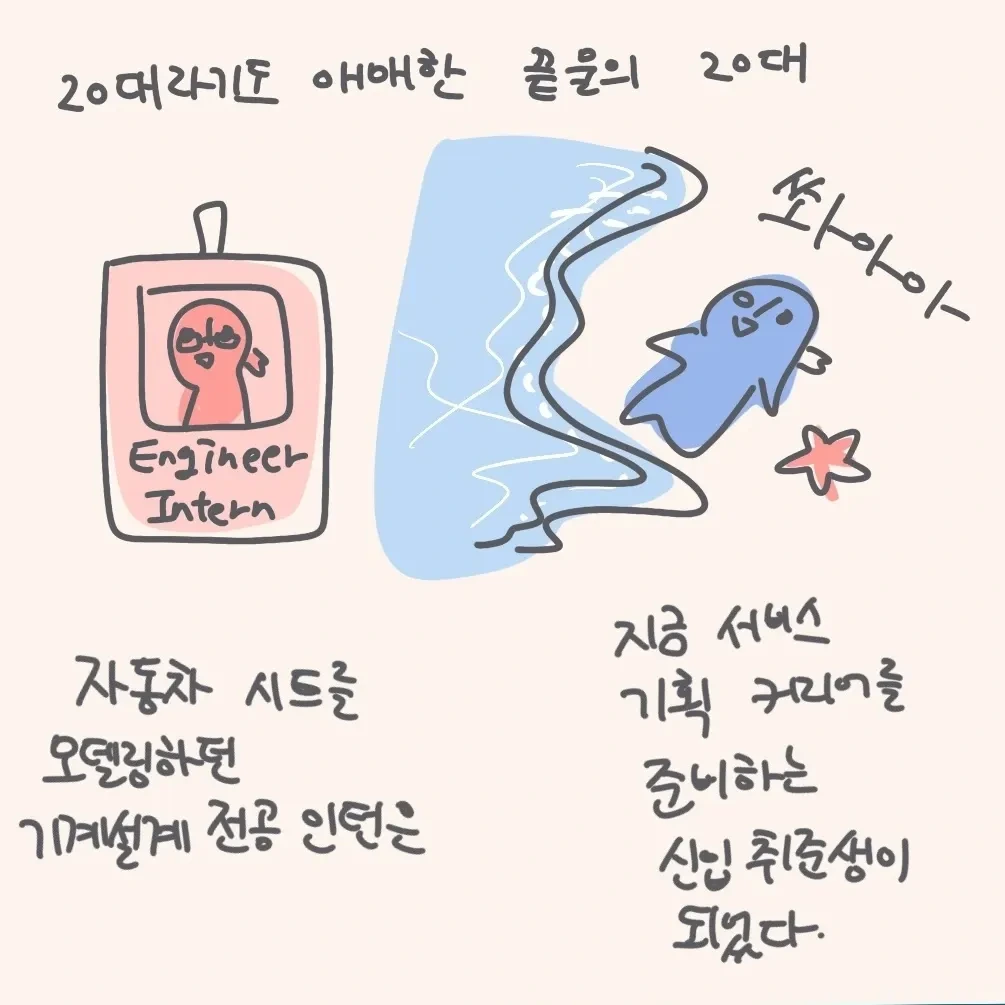 20대라기도 애매한 끝물의 20대
쏴아아아
Engineer
Intern
자동차 시트를
모델링하던
기계설계 전공 인턴은
지금 서비스
기획 커리어를
준비하는
신입 취준생이
되었다.